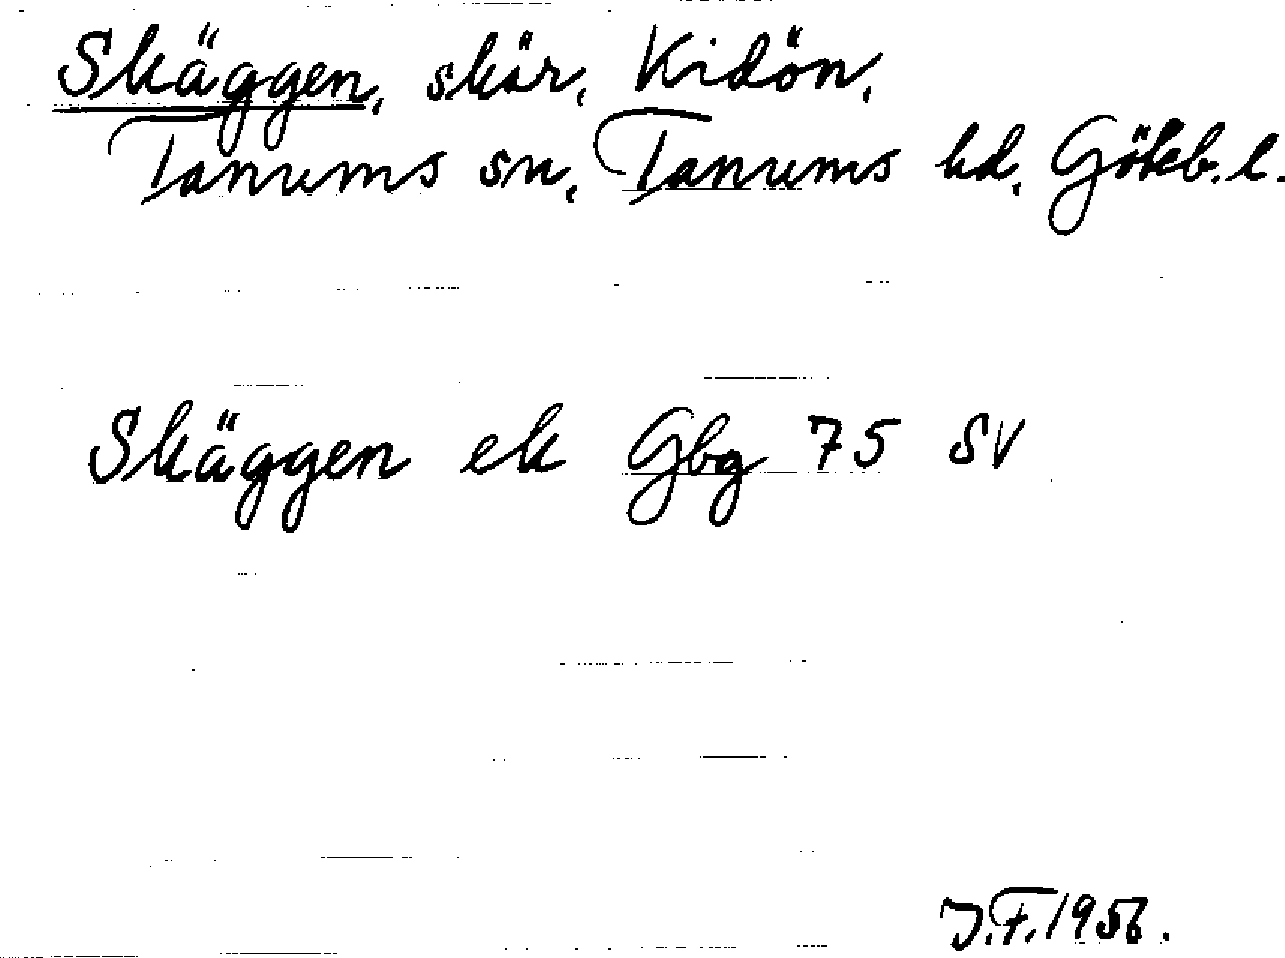 Skäggen, skär, Kidön,
Tanums sn, Tanums hd, Göteb. l.
Skäggen ek Gbg 75 SV
J.F. 1956.